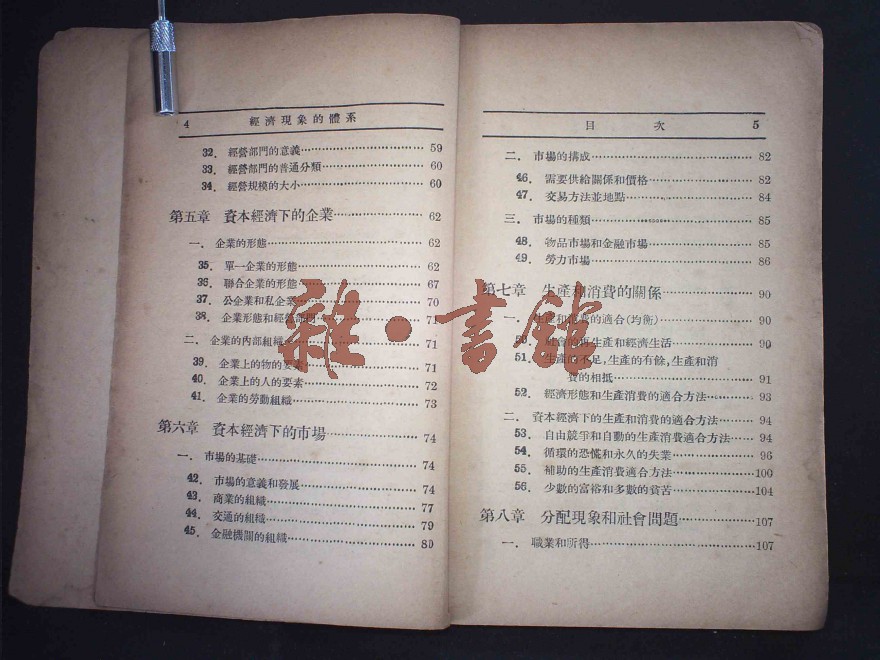 4 經濟現象的體系
32. 經營部門的意義 59
33. 經營部門的普通分類 60
34. 經營規模的大小 60
第五章 資本經濟下的企業 62
一. 企業的形態 62
35. 單一企業的形態 62
36. 聯合企業的形態 67
37. 公企業和私企業 70
38. 企業形態和經營部門 71
二. 企業的內部組織 71
39. 企業上的物的要素 71
40. 企業上的人的要素 72
41. 企業的勞動組織 73
第六章 資本經濟下的市場 74
一. 市場的基礎 74
42. 市場的意義和發展 74
43. 商業的組織 77
44. 交通的組織 79
45. 金融機關的組織 80
目次 5
二. 市場的構成 82
46. 需要供給關係和價格 82
47. 交易方法並地點 84
三. 市場的種類 85
48. 物品市場和金融市場 85
49. 勞力市場 86
第七章 生產和消費的關係 90
一. 生產和消費的適合(均衡) 90
50. 社會的再生產和經濟生活 90
51. 生產的不足,生產的有餘,生產和消
費的相抵 91
52. 經濟形態和生產消費的適合方法 93
二. 資本經濟下的生產和消費的適合方法 94
53. 自由競爭和自動的生產消費適合方法 94
54. 循環的恐慌和永久的失業 96
55. 補助的生產消費適合方法 100
56. 少數的富裕和多數的貧苦 104
第八章 分配現象和社會問題 107
一. 職業和所得 107
雜·書館